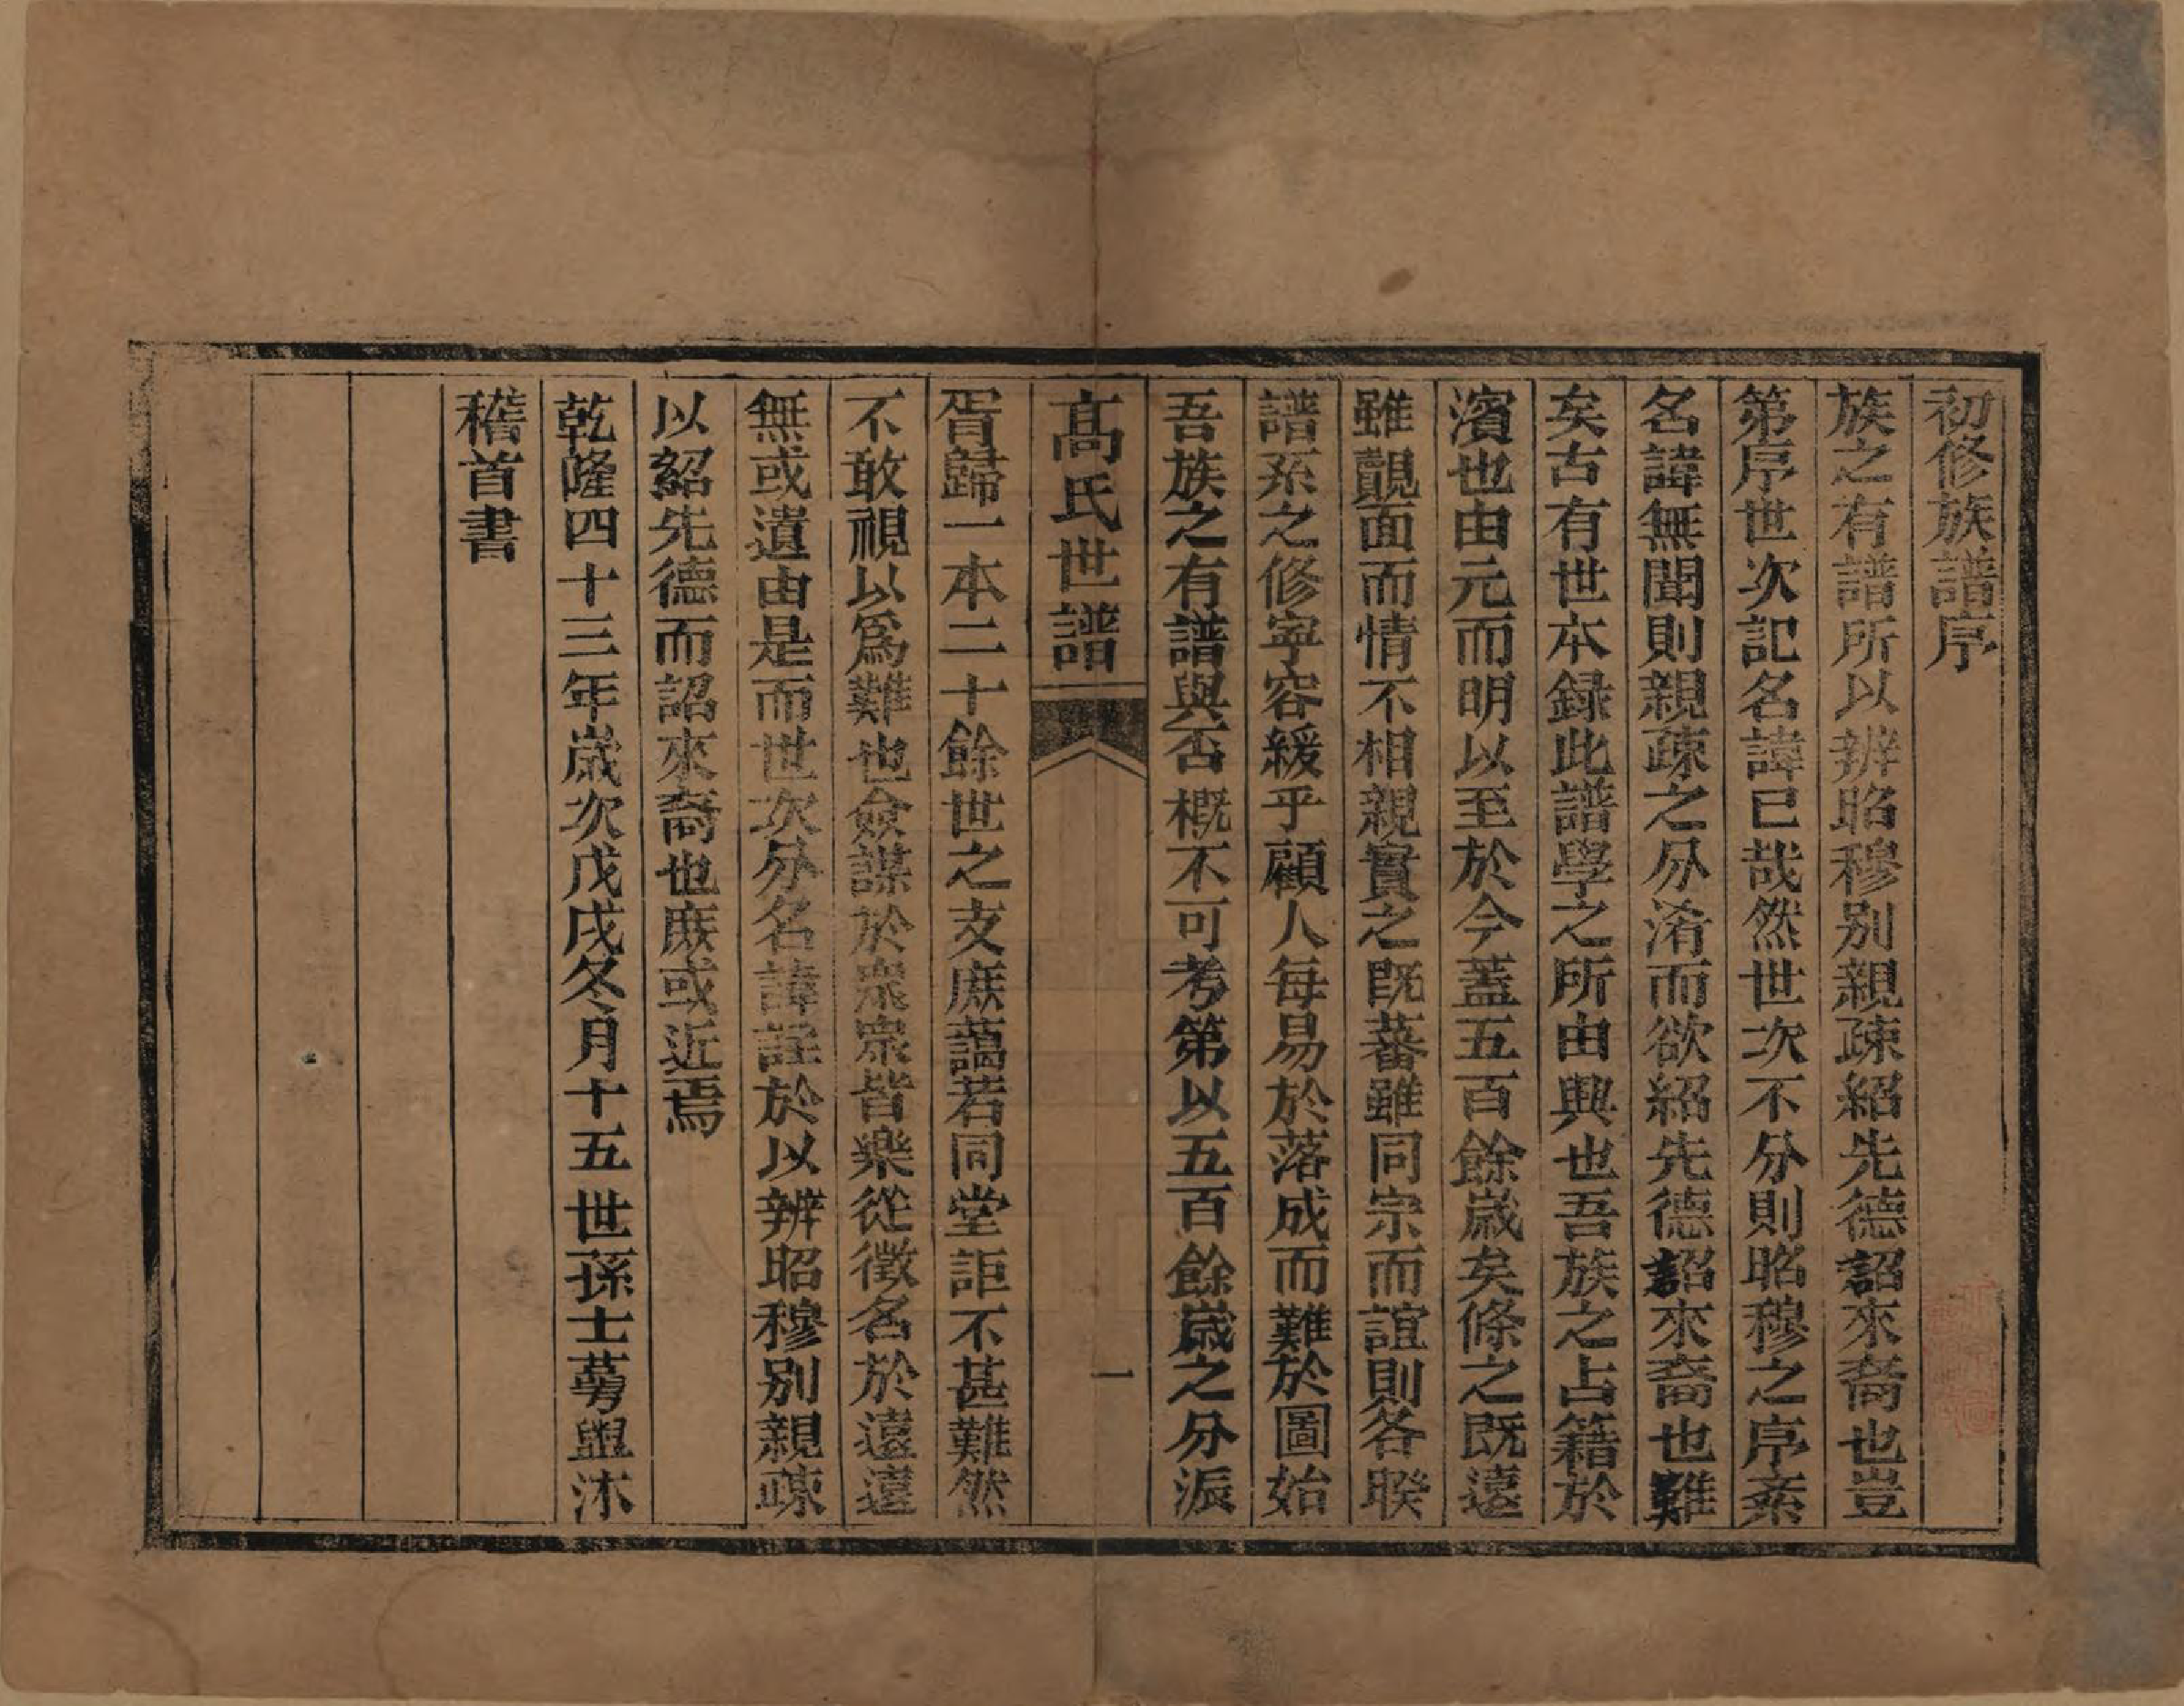 初修族譜序
族之有譜所以辨昭穆别親疎紹先德詔來裔也豈
第序世次記名諱已哉然世次不分則昭穆之序紊
名諱無聞則親疎之分淆而欲紹先德詔來裔也難
矣古有世本録此譜學之所由興也吾族之占籍於
濱也由元而明以至於今蓋五百餘嵗矣條之既遠
雖覿面而情不相親實之既蕃雖同宗而誼則各暌
譜系之修寧容緩乎顧人每易於落成而難於圖始
吾族之有譜與否概不可考第以五百餘嵗之分派
高氏世譜
一
胥歸一本二十餘世之支庶藹若同堂詎不甚難然
不敢視以爲難也僉謀於衆衆皆樂從徵名於遠遠
無或遺由是而世次分名諱詳於以辨昭穆别親疎
以紹先德而詔來裔也庶或近焉
乾隆四十三年嵗次戊戌冬月十五世孫士蒡盥沐
稽首書